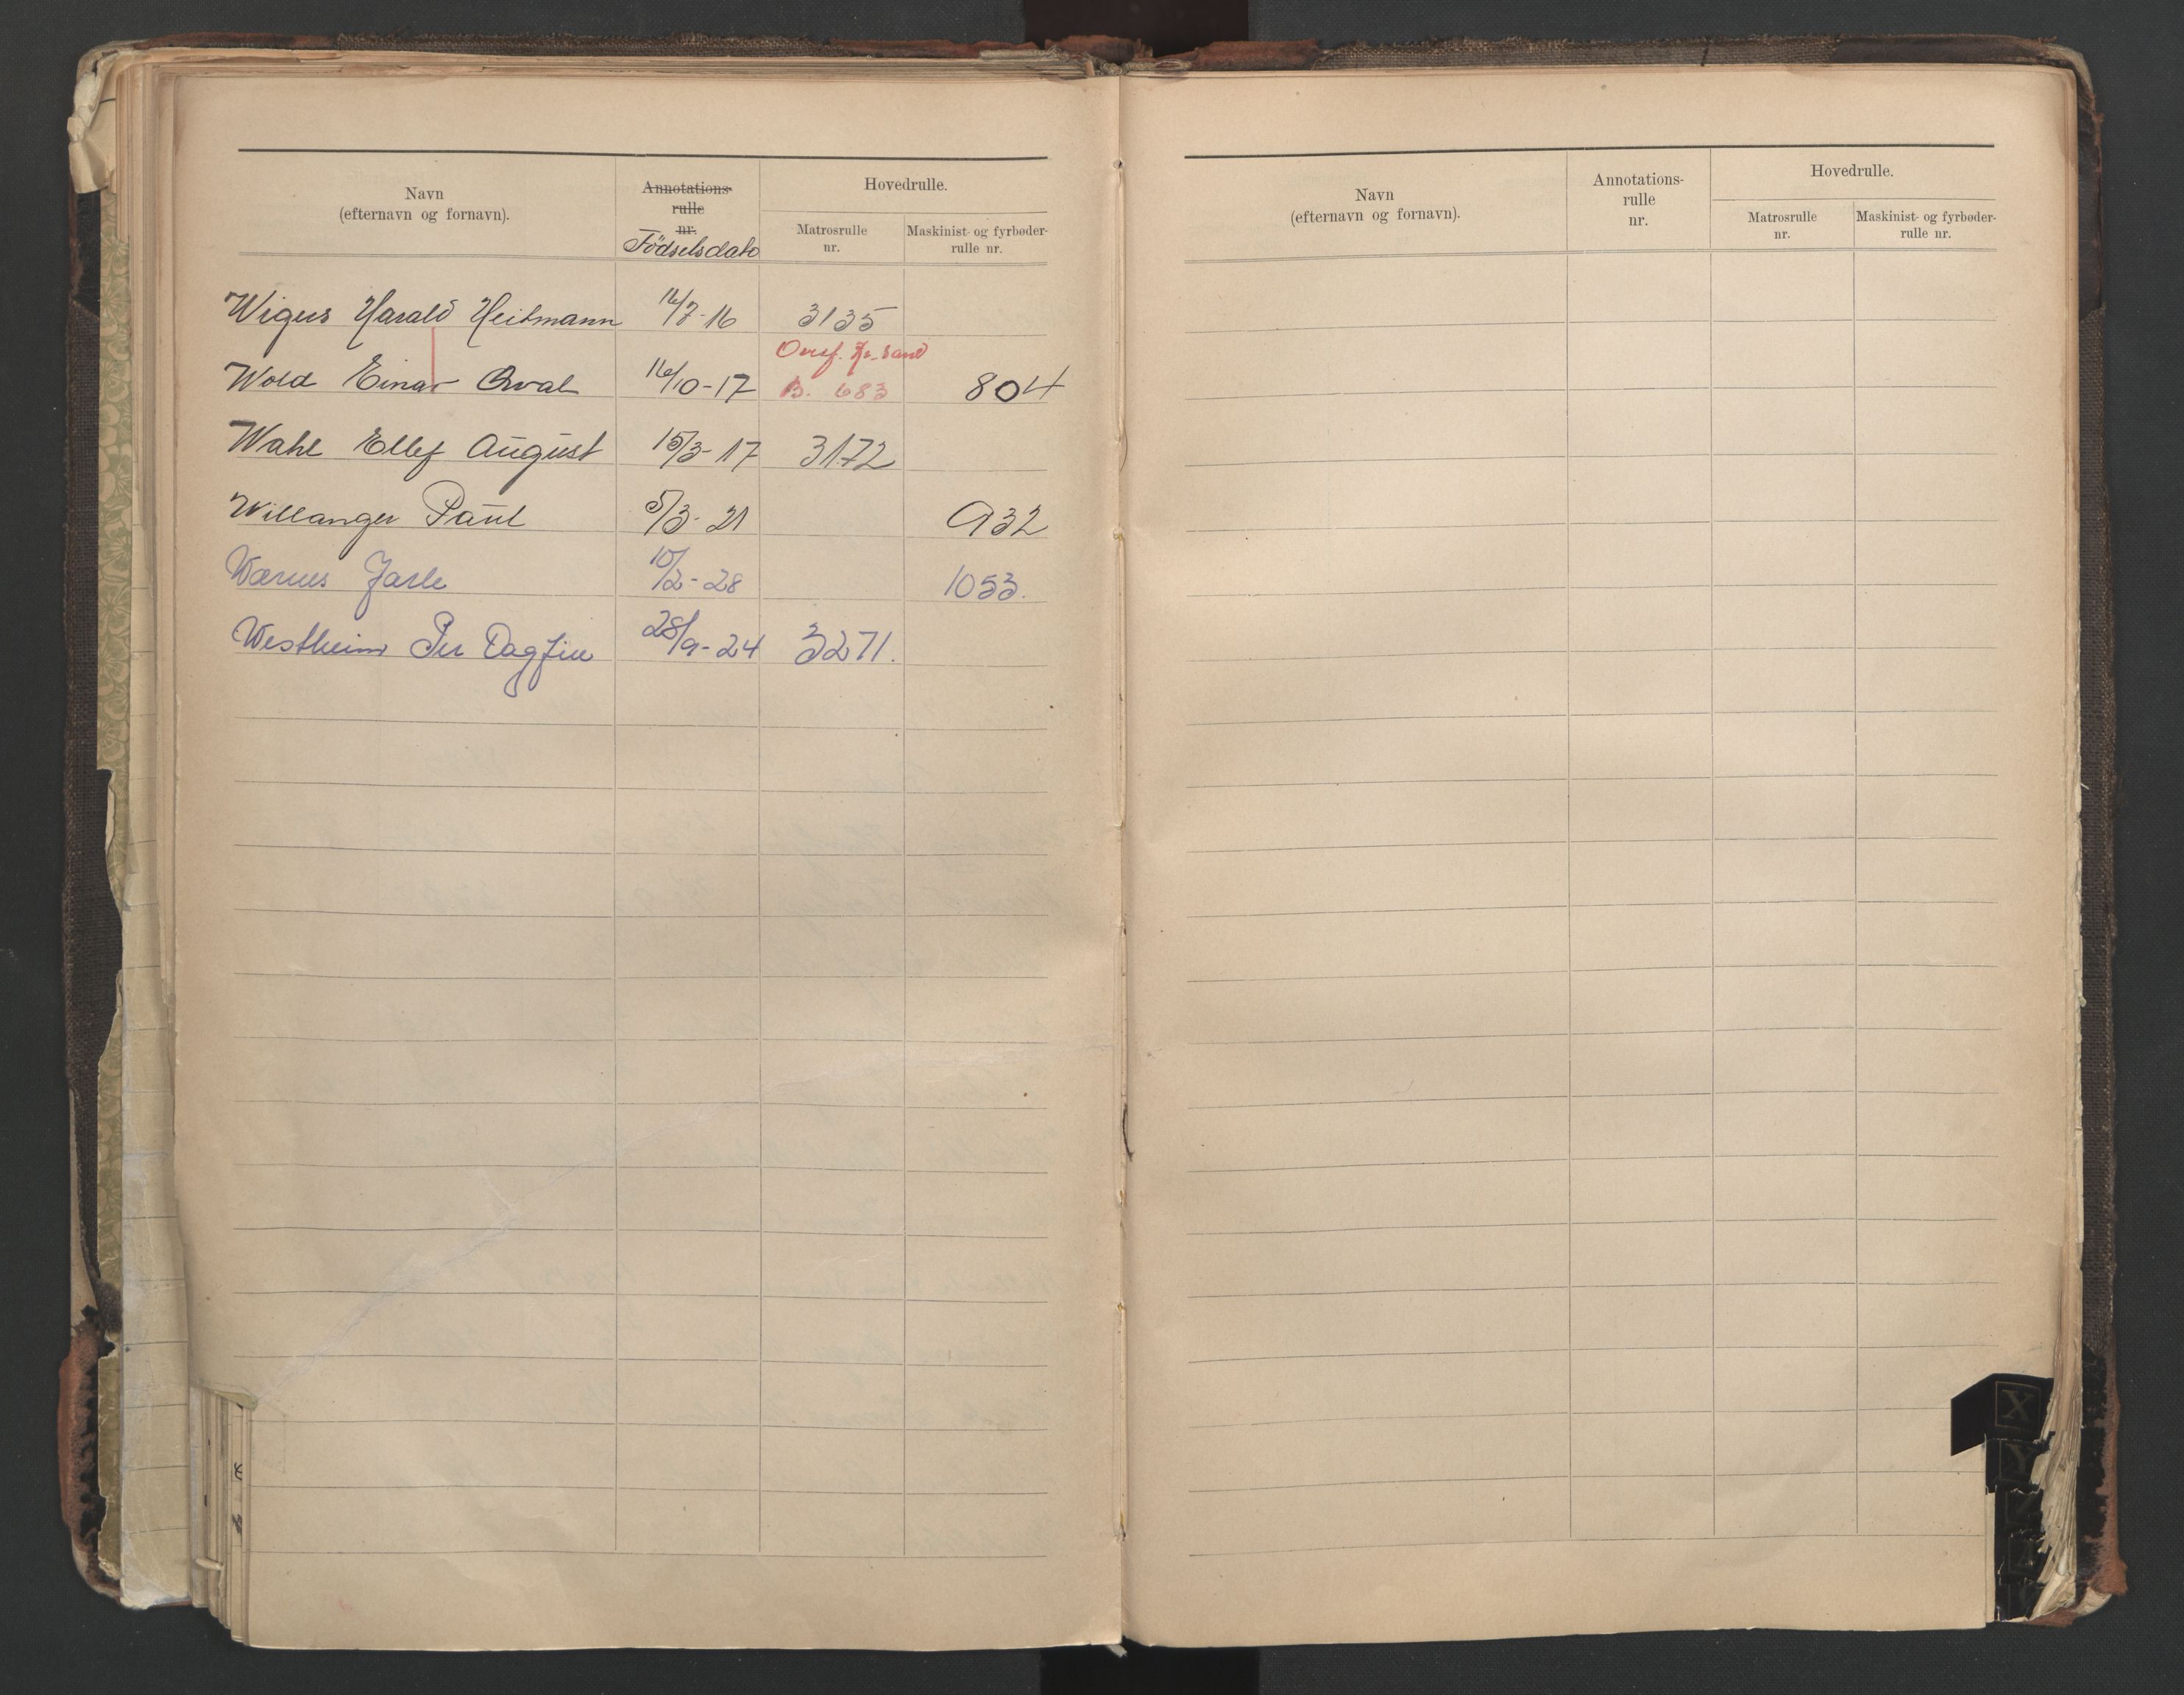 Navn
(efternavn og fornavn).
Annotations-
rulle
nr.
Födselsdato
Hovedrulle.
Matrosrulle
nr.
Maskinist- og fyrbøder-
rulle nr.
Harald Heitmann 16/7-16 3135
Overf. Kr.sand
Wold Einar 16/10-17 B. 683 804
Wahl Ellef August 15/3-17 3172
Willanger Paul 5/3-21 932
Jarle 10/2-28 1053.
Westheim Per Dagfin 28/9-24 3271.
Navn
(efternavn og fornavn).
Annotations-
rulle
nr.
Hovedrulle.
Matrosrulle
nr.
Maskinist- og fyrbøder-
rulle nr.
X
Y
Z